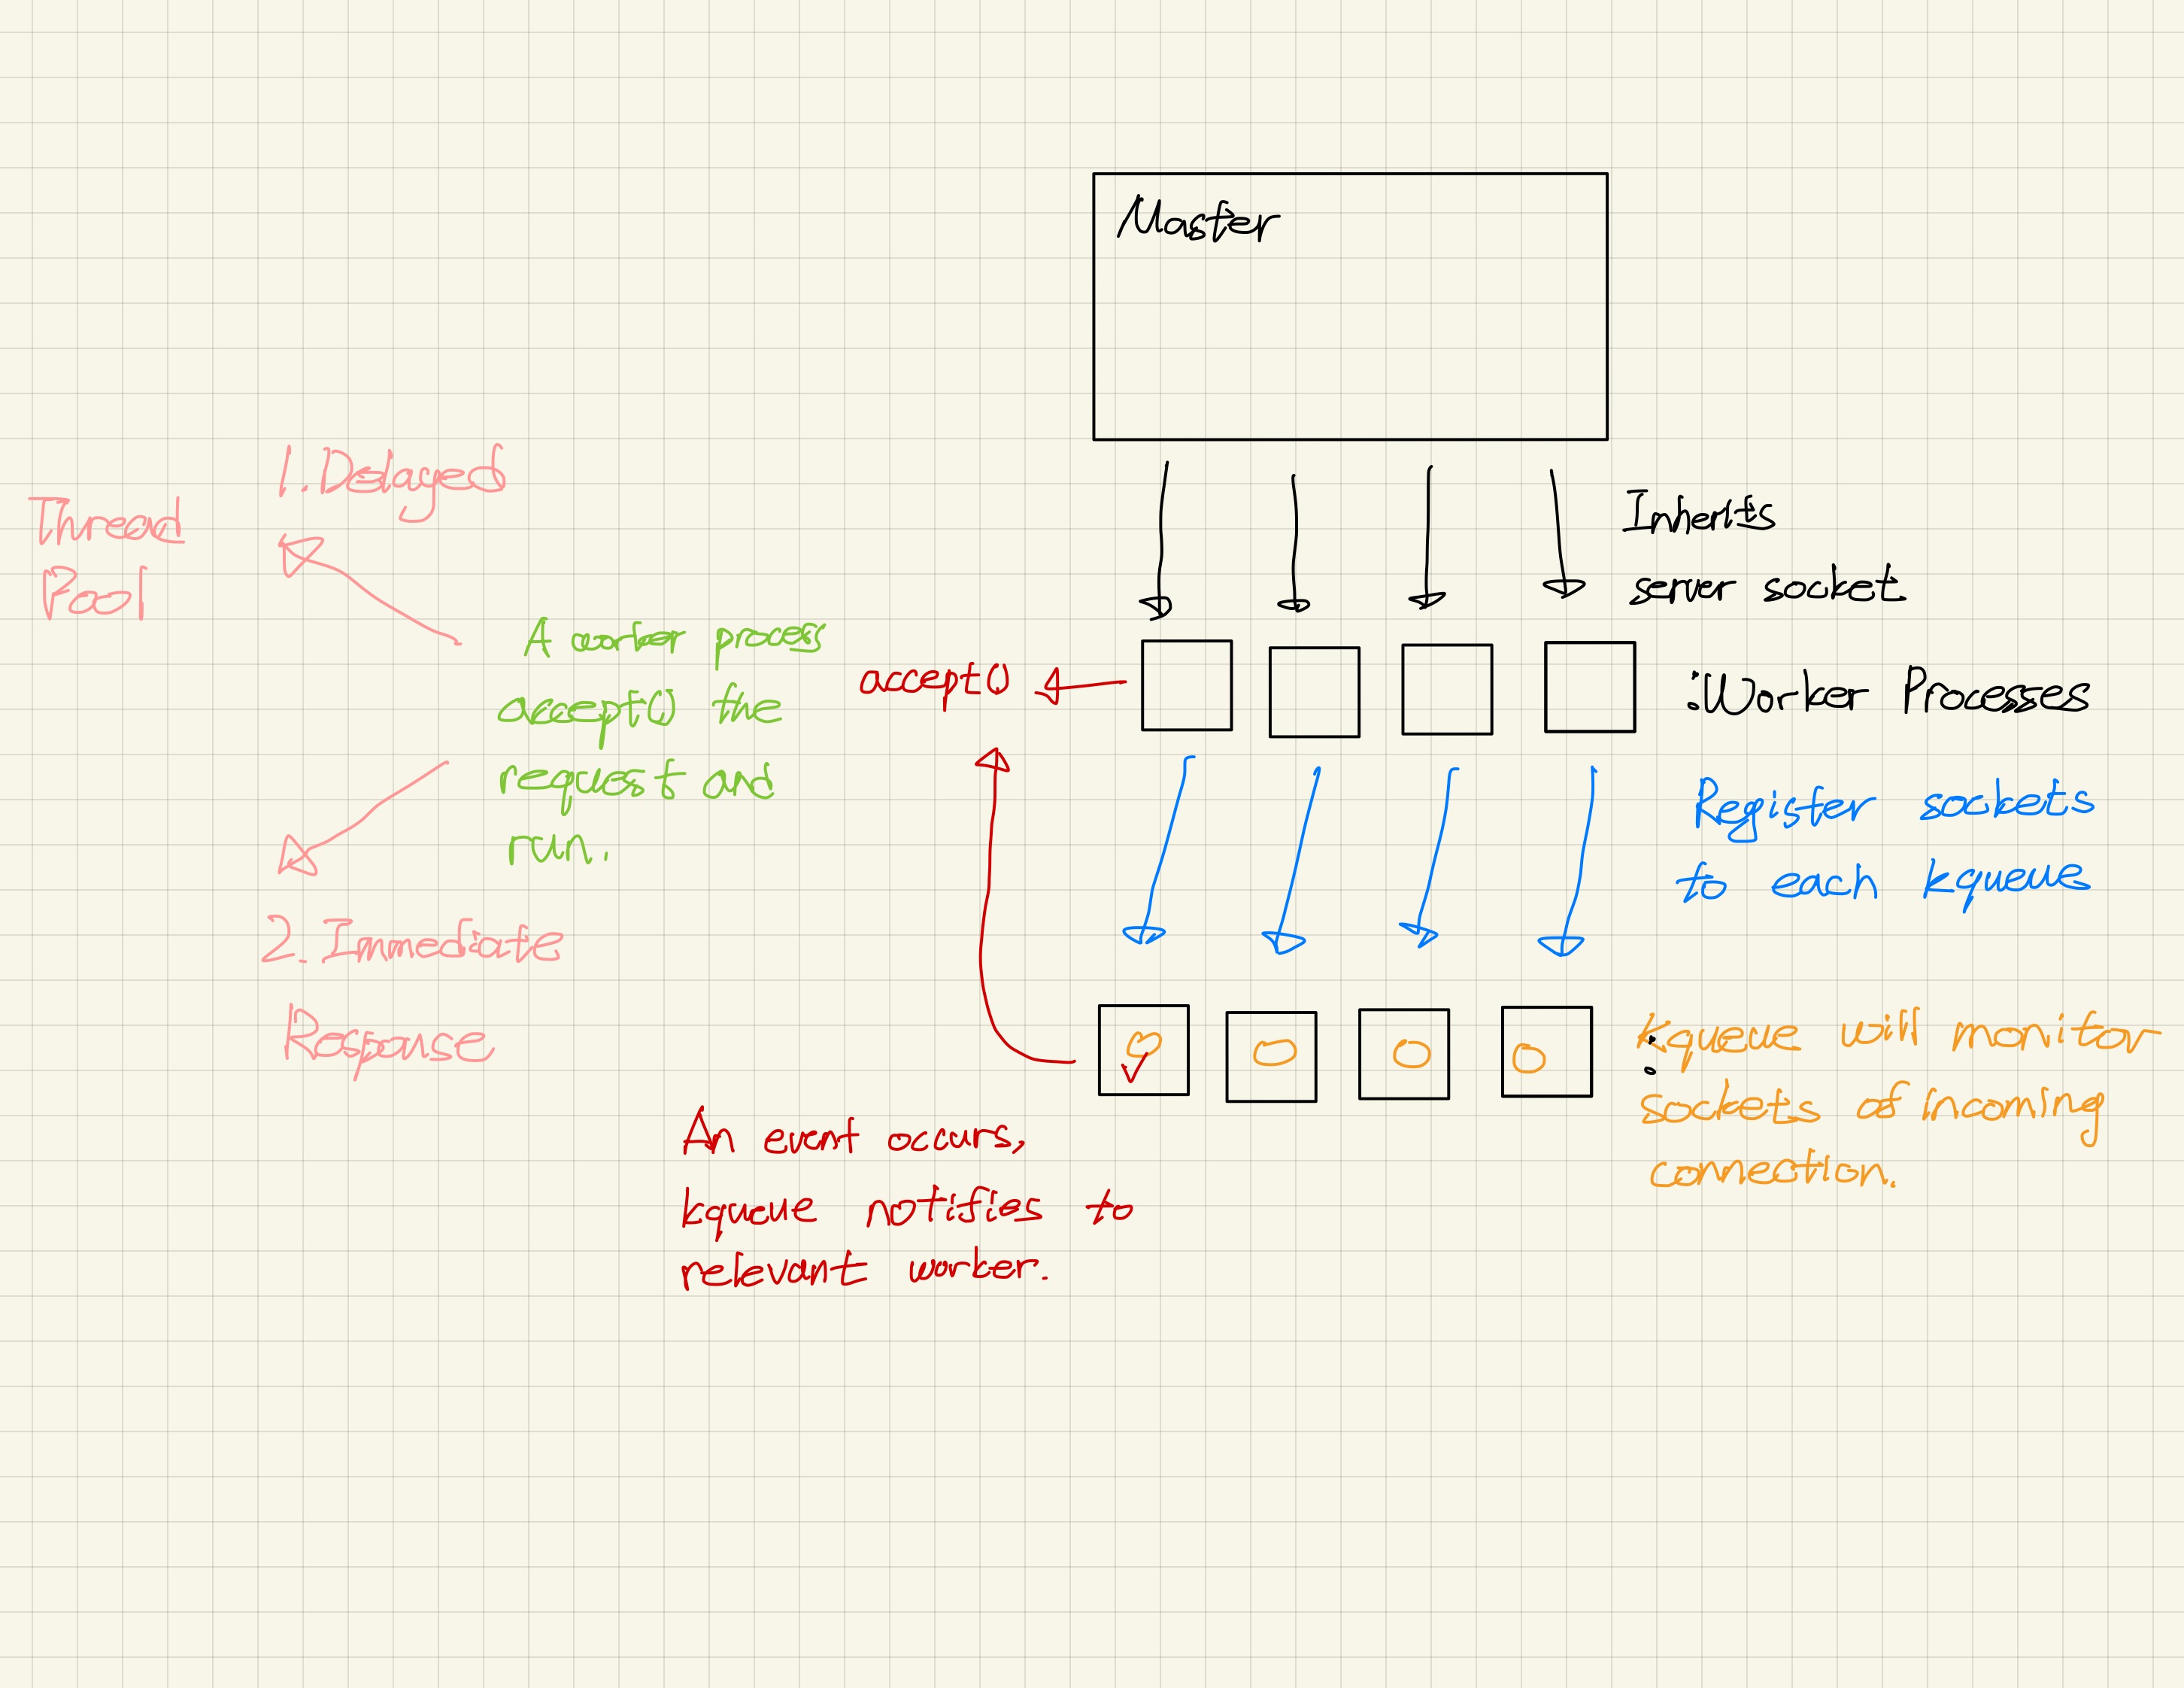 Master
Inherits
server socket
:Worker Processes
Register sockets
to each kqueue
Kqueue will monitor
sockets of incoming
connection.
An event occurs,
kqueue notifies to
relevant worker.
accept()
A worker process
accept() the
request and
run.
1. Delayed
Thread
Pool
2. Immediate
Response